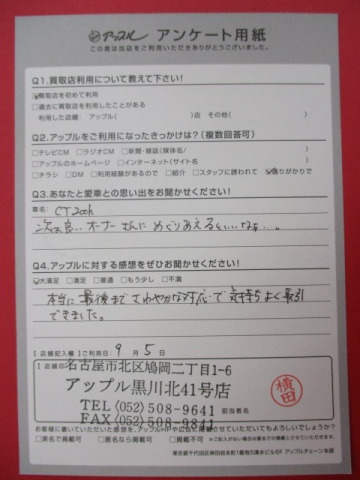 アップル アンケート用紙
この度は当店をご利用いただきありがとうございました。
Q1.買取店利用について教えて下さい!
☑買取店を初めて利用
□過去に買取店を利用したことがある
利用した店舗: アップル( )店 その他( )
Q2.アップルをご利用になったきっかけは?(複数回答可)
□テレビCM □ラジオCM □新聞・雑誌(媒体名/ )
□アップルのホームページ □インターネット(サイト名 )
□チラシ □DM □利用経験があるので □紹介 □スタッフに誘われて ☑通りがかりで
Q3.あなたと愛車との思い出をお聞かせください!
車名: CT200h
次は良いオーナーさんにめぐりあえるといいなぁ…。
Q4.アップルに対する感想をぜひお聞かせください!
☑大満足 □満足 □普通 □もう少し □不満
本当に最後までさわやかな対応で気持ちよく取引
できました。
【店舗記入欄】ご利用日: 9月5日
【店舗印】
名古屋市北区鳩岡二丁目1-6
アップル黒川北41号店
TEL(052)508-9641
FAX(052)508-9841
担当者名
横田
お客様に書いていただいた感想を、アップルHPや広告に掲載させていただいてもよろしいでしょうか?
□実名で掲載可 □匿名なら掲載可 □掲載不可 ※ご記入がない場合は匿名での掲載とさせていただきます。